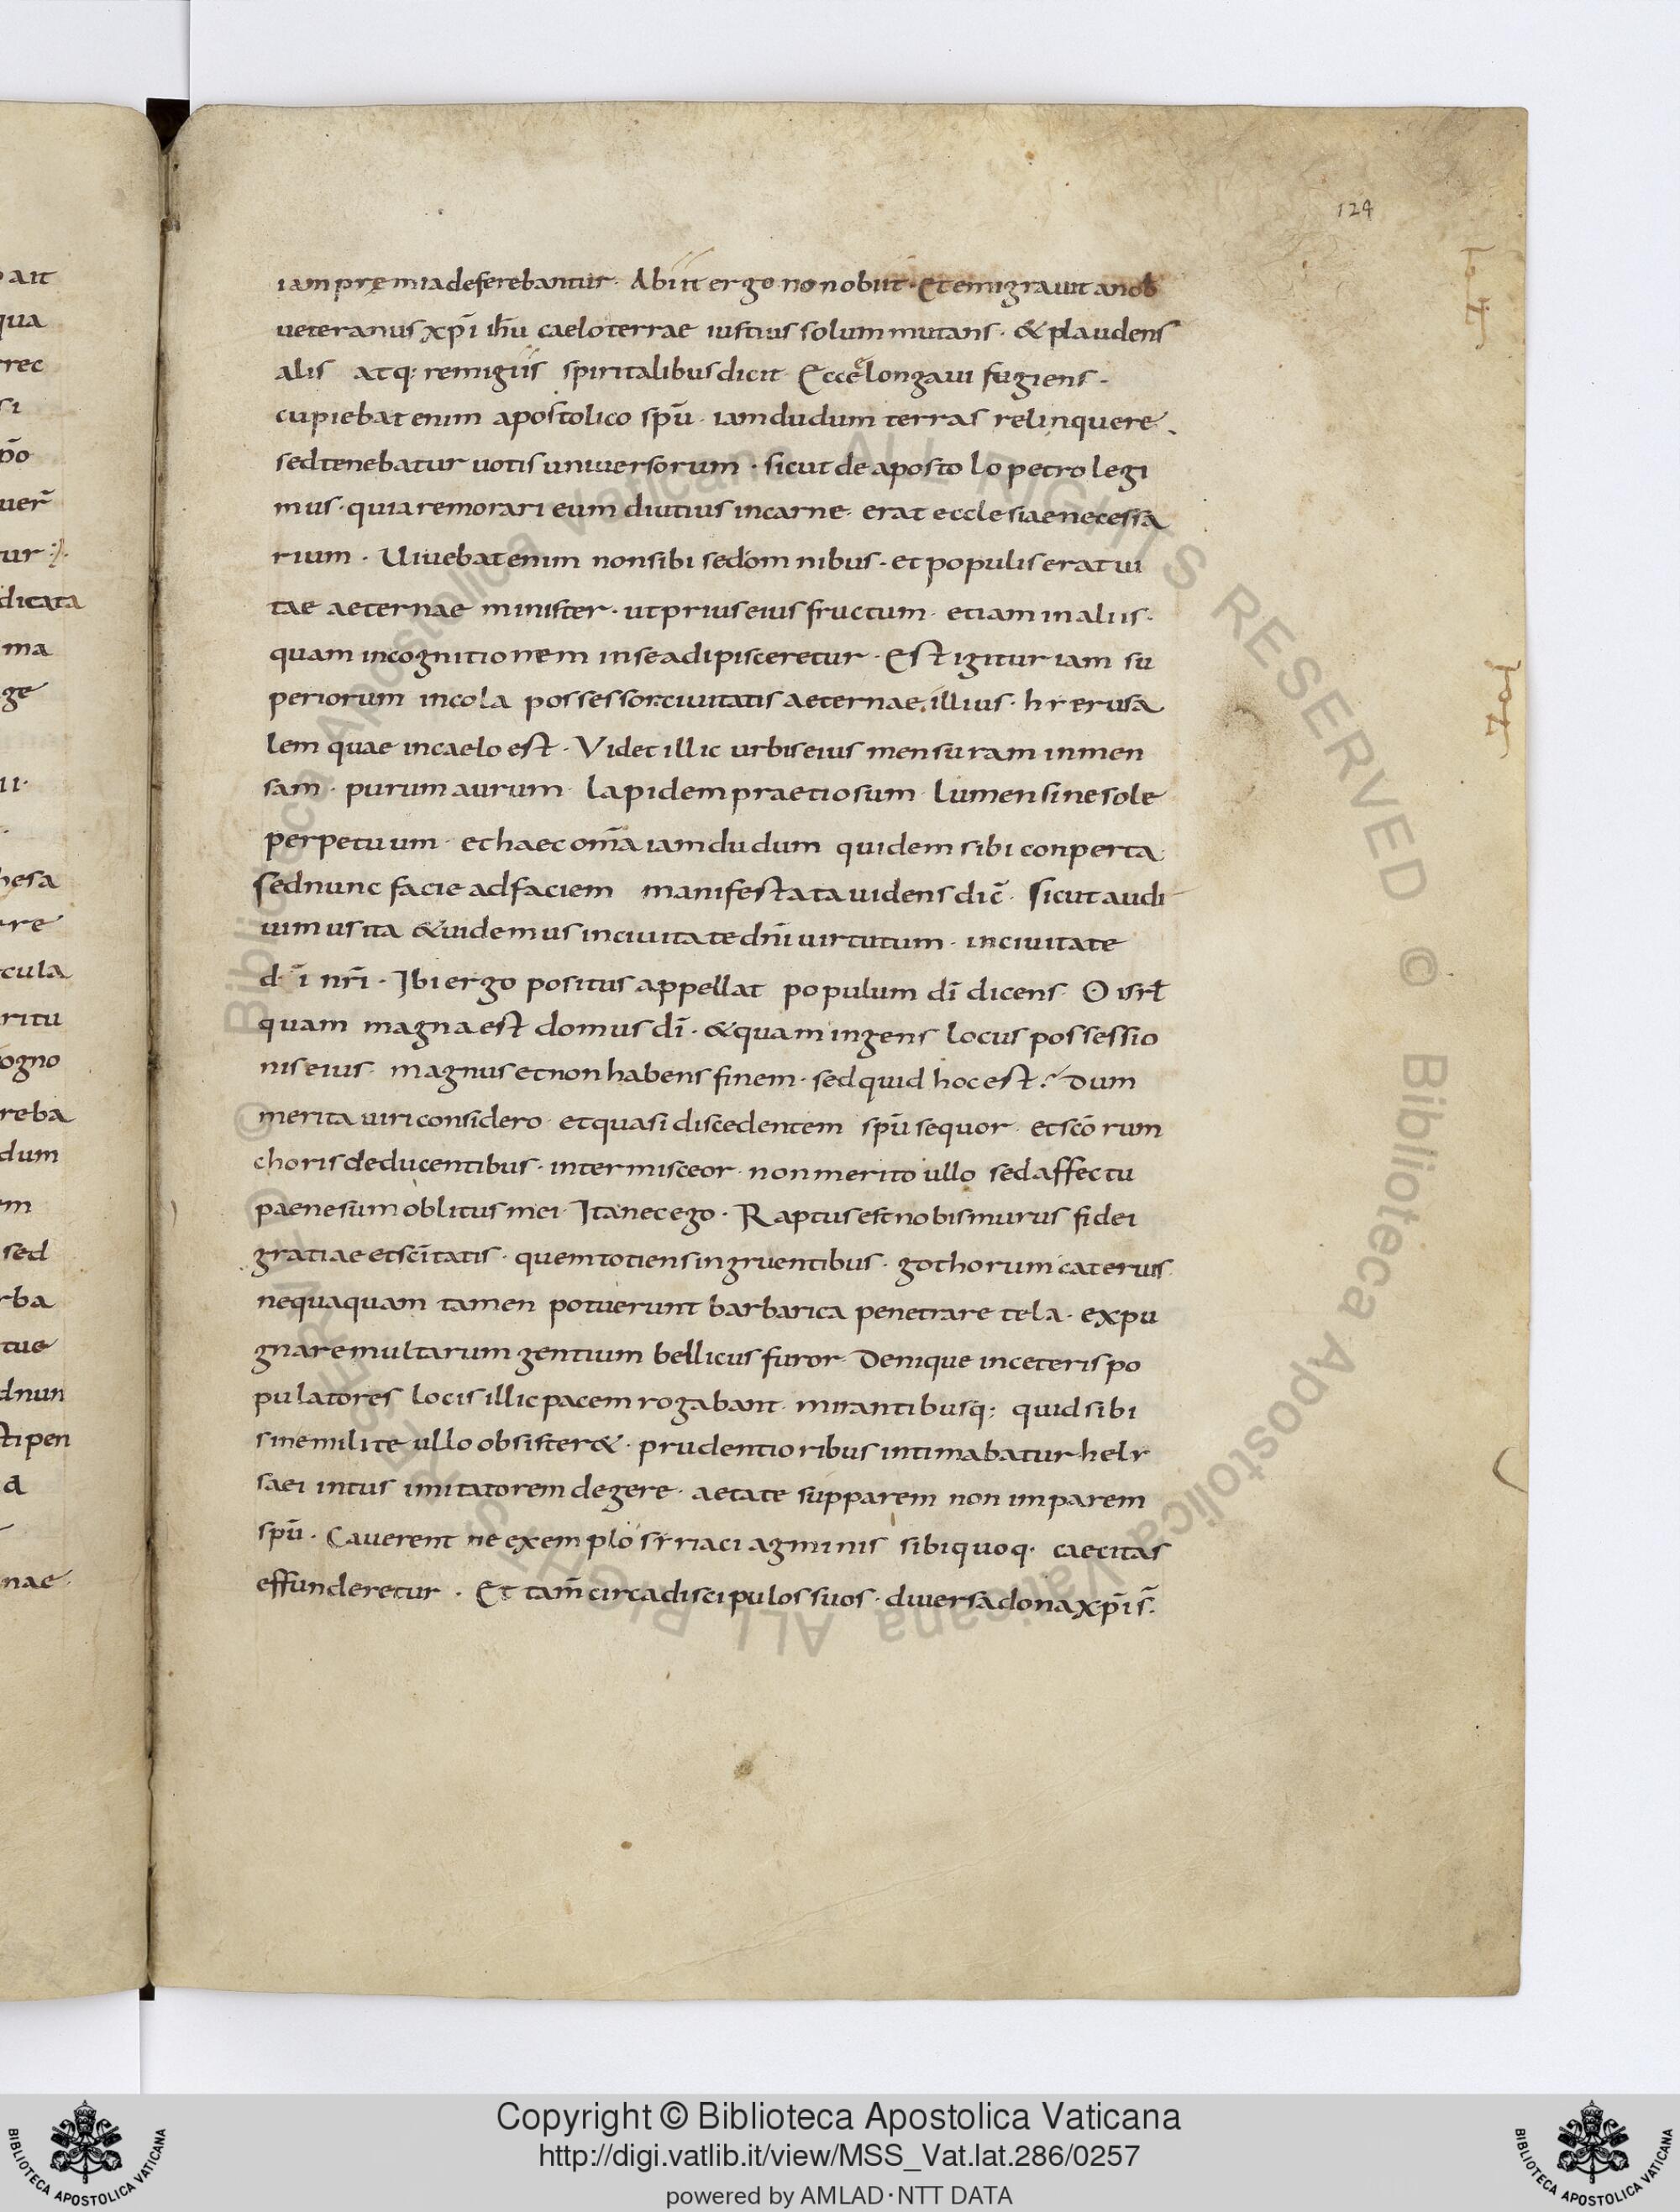 124
iam pręmia deferebantur · Abiit ergo non obiit · Et emigravit a nob
ueteranus xp̄i ih̄u caelo terrae iustius solum mutans · & plaudens
alis atq: remigiis spiritalibus dicit Ecce elongaui fugiens ·
cupiebat enim apostolico sp̄u · iamdudum terras relinquere ·
sed tenebatur uotis uniuersorum · sicut de apostolo petro legi
mus · quia remorari eum diutius in carne · erat ecclesiae necessa
rium · Uiuebat enim non sibi sed omnibus · et populis erat ui
tae aeternae minister · ut prius eius fructum · etiam in aliis ·
quam in cognitionem in se adipisceretur · Est igitur iam su
periorum incola possessor ciuitatis aeternae illius · hyerusa
lem quae in caelo est · Videt illic urbis eius mensuram inmen
sam · purum aurum · lapidem praetiosum · lumen sine sole
perpetuum · et haec om̄a iamdudum quidem sibi conperta ·
sed nunc facie ad faciem manifestata uidens dic̄ · sicut audi
uimus ita & uidemus in ciuitate dn̄i uirtutum · in ciuitate
d ̄i nr̄i · Ibi ergo positus appellat populum dī dicens · O isrł
quam magna est domus dī · & quam ingens locus possessio
nis eius · magnus et non habens finem · sed quid hoc est? dum
merita uiri considero · et quasi discedentem sp̄u sequor · et scōrum
choris deducentibus · intermisceor · non merito ullo sed affectu
paene sum oblitus mei · Ita nec ego · Raptus est nobis murus fidei
gratiae et scītatis · quem totiens ingruentibus · gothorum cateruis
nequaquam tamen potuerunt barbarica penetrare tela · expu
gnare multarum gentium bellicus furor · Denique in ceteris po
pulatores locis illic pacem rogabant · mirantibusq: quid sibi
sine milite ullo obsister& · prudentioribus intimabatur hely
saei intus imitatorem degere · aetate supparem non imparem
sp̄u · Cauerent ne exemplo syriaci agminis sibi quoq · caecitas
effunderetur · Et tam̄ circa discipulos suos · diuersa dona xp̄i s̄
Copyright © Biblioteca Apostolica Vaticana
http://digi.vatlib.it/view/MSS_Vat.lat.286/0257
powered by AMLAD·NTT DATA